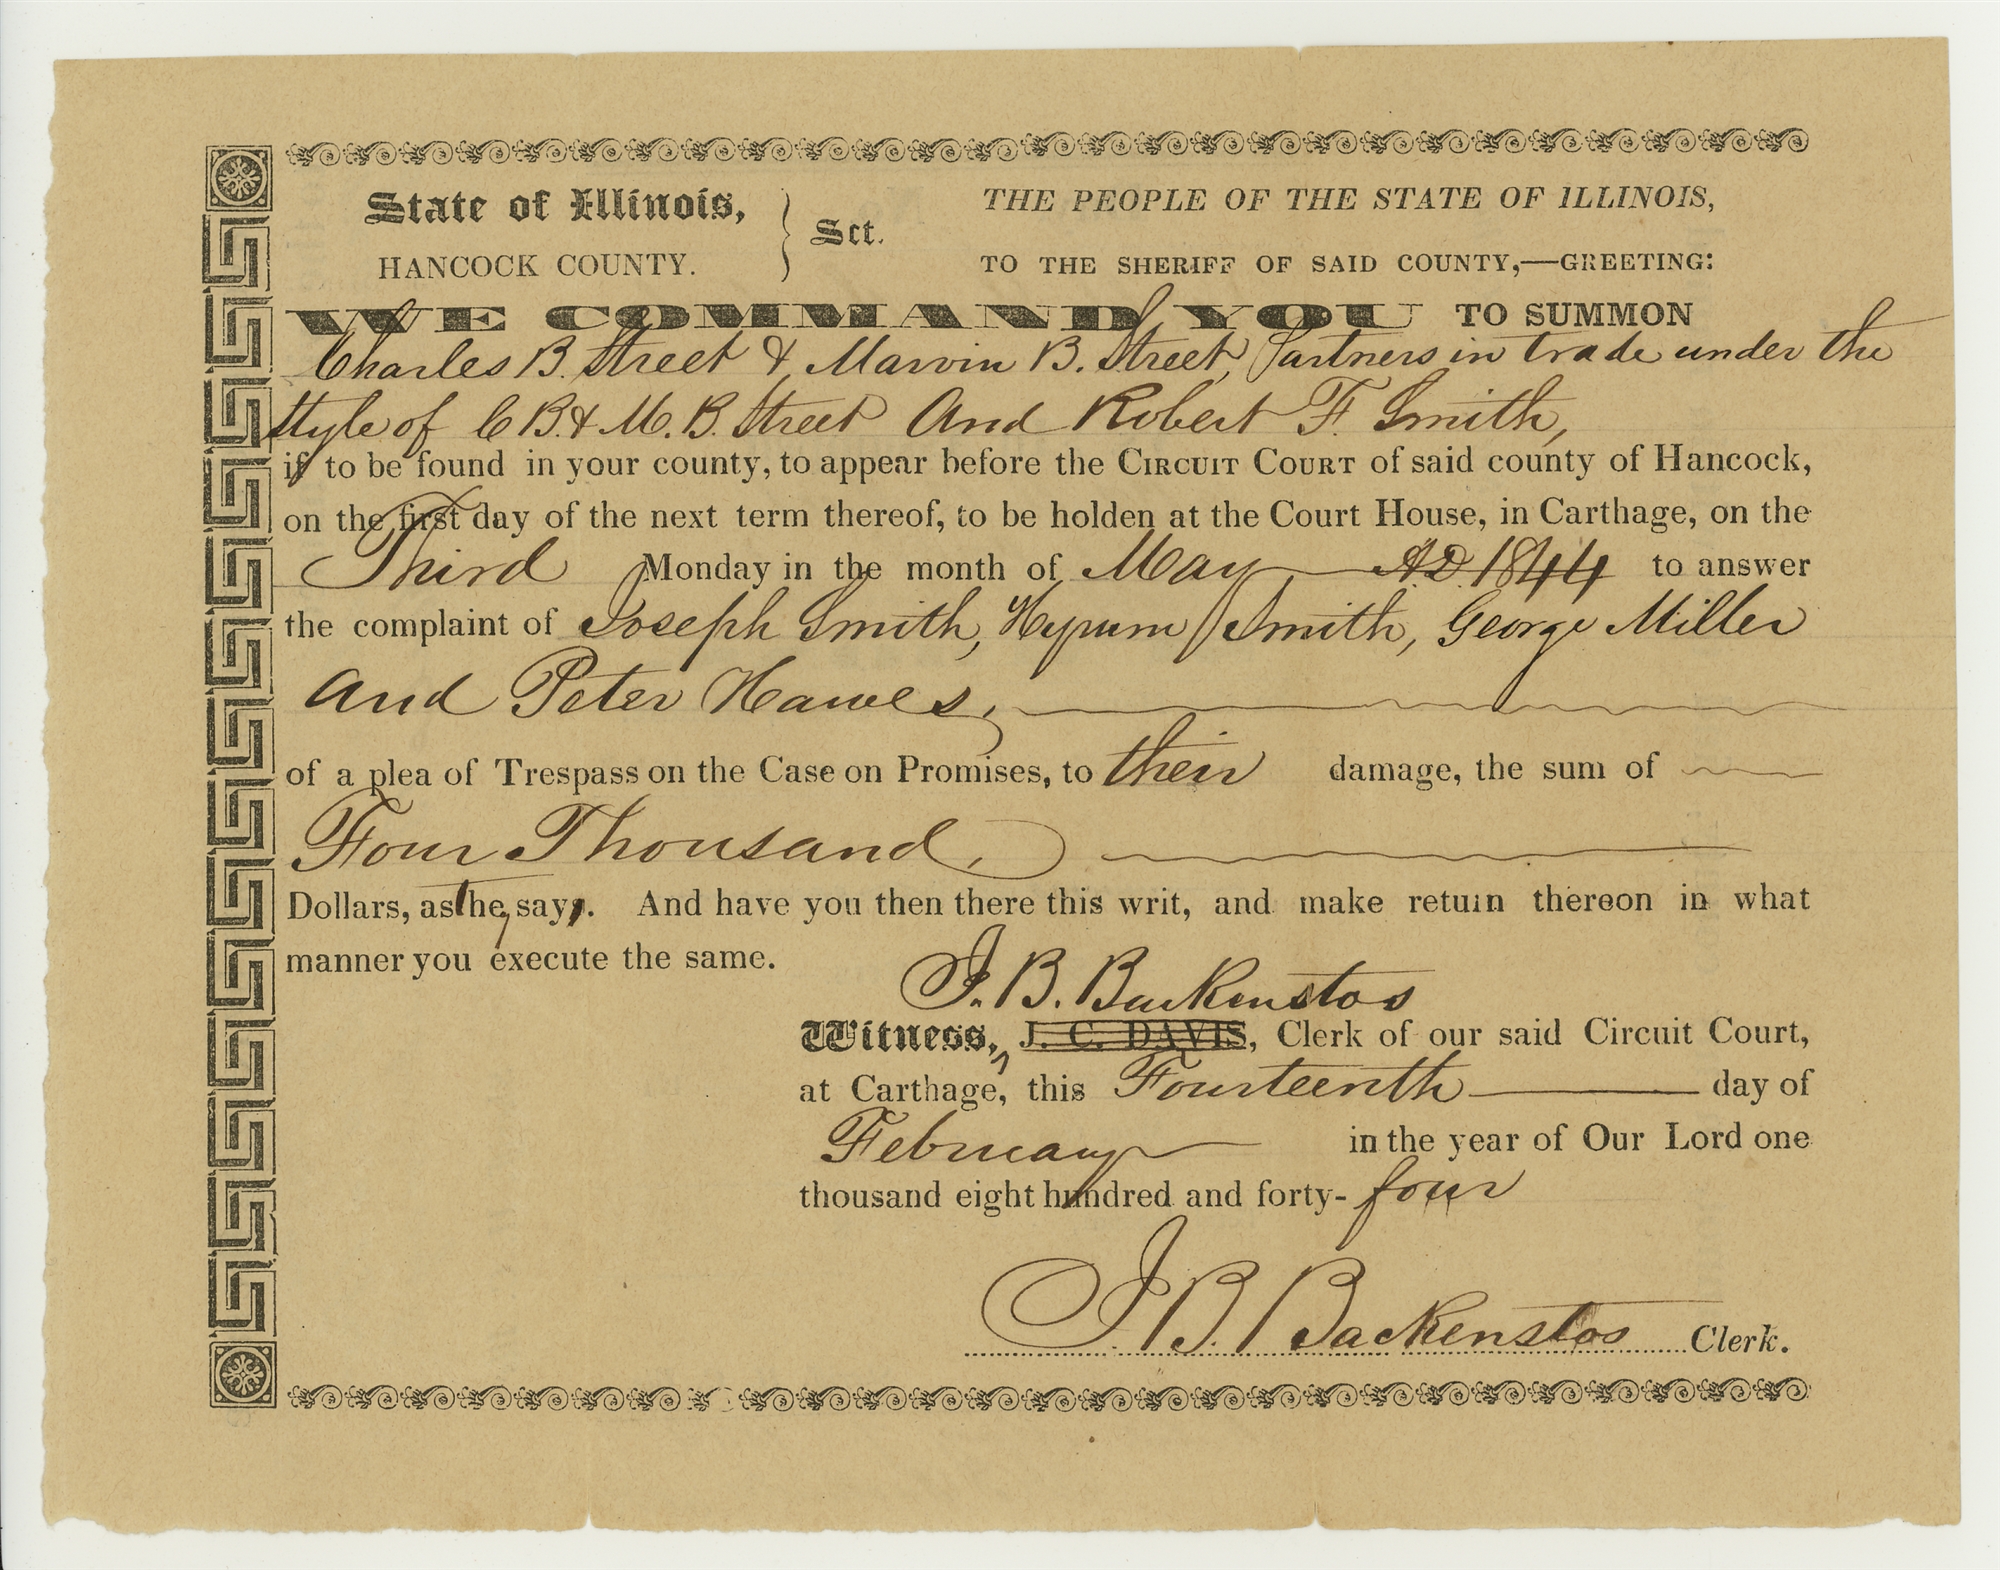 State of Illinois, } Sct. THE PEOPLE OF THE STATE OF ILLINOIS,
HANCOCK COUNTY. TO THE SHERIFF OF SAID COUNTY,—GREETING:
WE COMMAND YOU TO SUMMON
Charles B. Street & Marvin B. Street, Partners in trade under the
style of C B. & M. B. Street And Robert F. Smith,
if to be found in your county, to appear before the CIRCUIT COURT of said county of Hancock,
on the first day of the next term thereof, to be holden at the Court House, in Carthage, on the
Third Monday in the month of May AD 1844 to answer
the complaint of Joseph Smith, Hyrum Smith, George Miller
And Peter Hawes,
of a plea of Trespass on the Case on Promises, to their damage, the sum of
Four Thousand,
Dollars, as they say. And have you then there this writ, and make return thereon in what
manner you execute the same.
J. B. Backenstos
Witness, J. C. DAVIS, Clerk of our said Circuit Court,
at Carthage, this Fourteenth day of
February in the year of Our Lord one
thousand eight hundred and forty- four
J. B. Backenstos Clerk.